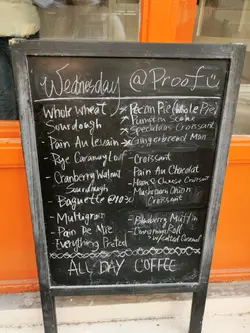 Wednesday @ Proof
Whole Wheat
Sourdough
Pain Au Levain
Rye Caraway Loaf
Cranberry Walnut
Sourdough
- Baguette @10:30
- Multigrain
- Pain De Mie
- Everything Pretzel
Pecan Pie (Whole Pie)
Pumpkin Scone
Speculoos Croissant
Gingerbread Man
Croissant
Pain Au Chocolat
Ham & Cheese Croissant
Mushroom Onion
Croissant
- Blueberry Muffin
- Cinnamon Roll
w/ Salted Caramel
ALL DAY COFFEE